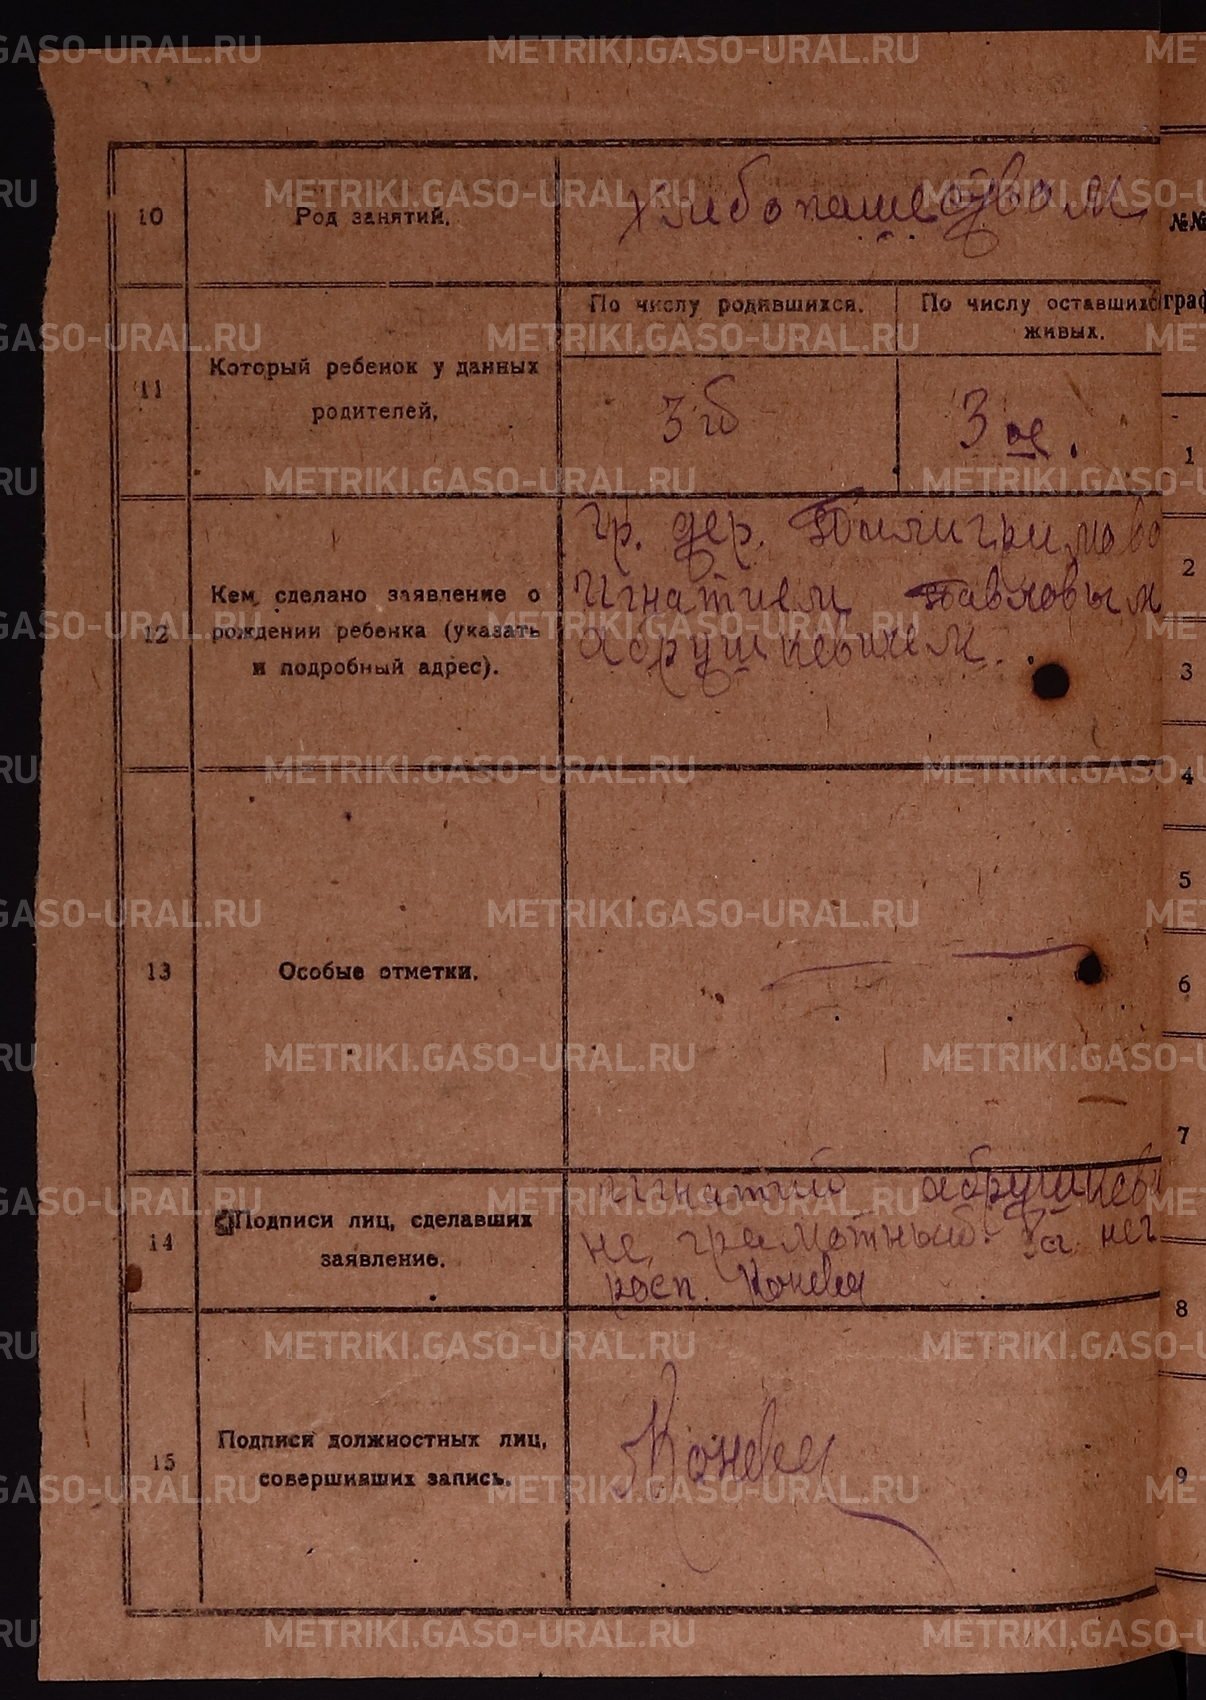 10
Род занятий.
хлебопашеством
№№
граф
11
Который ребенок у данных
родителей.
По числу родившихся.
По числу оставшихся
живых.
3 й
3 ое.
12
Кем сделано заявление о
рождении ребенка (указать
и подробный адрес).
гр. дер.
Игнатием Павловым
Абрушкевичем.
13
Особые отметки.
14
Подписи лиц, сделавших
заявление.
Игнатий Абрушкеви
не грамотный. За нег
росп. Конева
15
Подписи должностных лиц,
совершивших запись.
Конева
1
2
3
4
5
6
7
8
9
METRIKI.GASO-URAL.RU